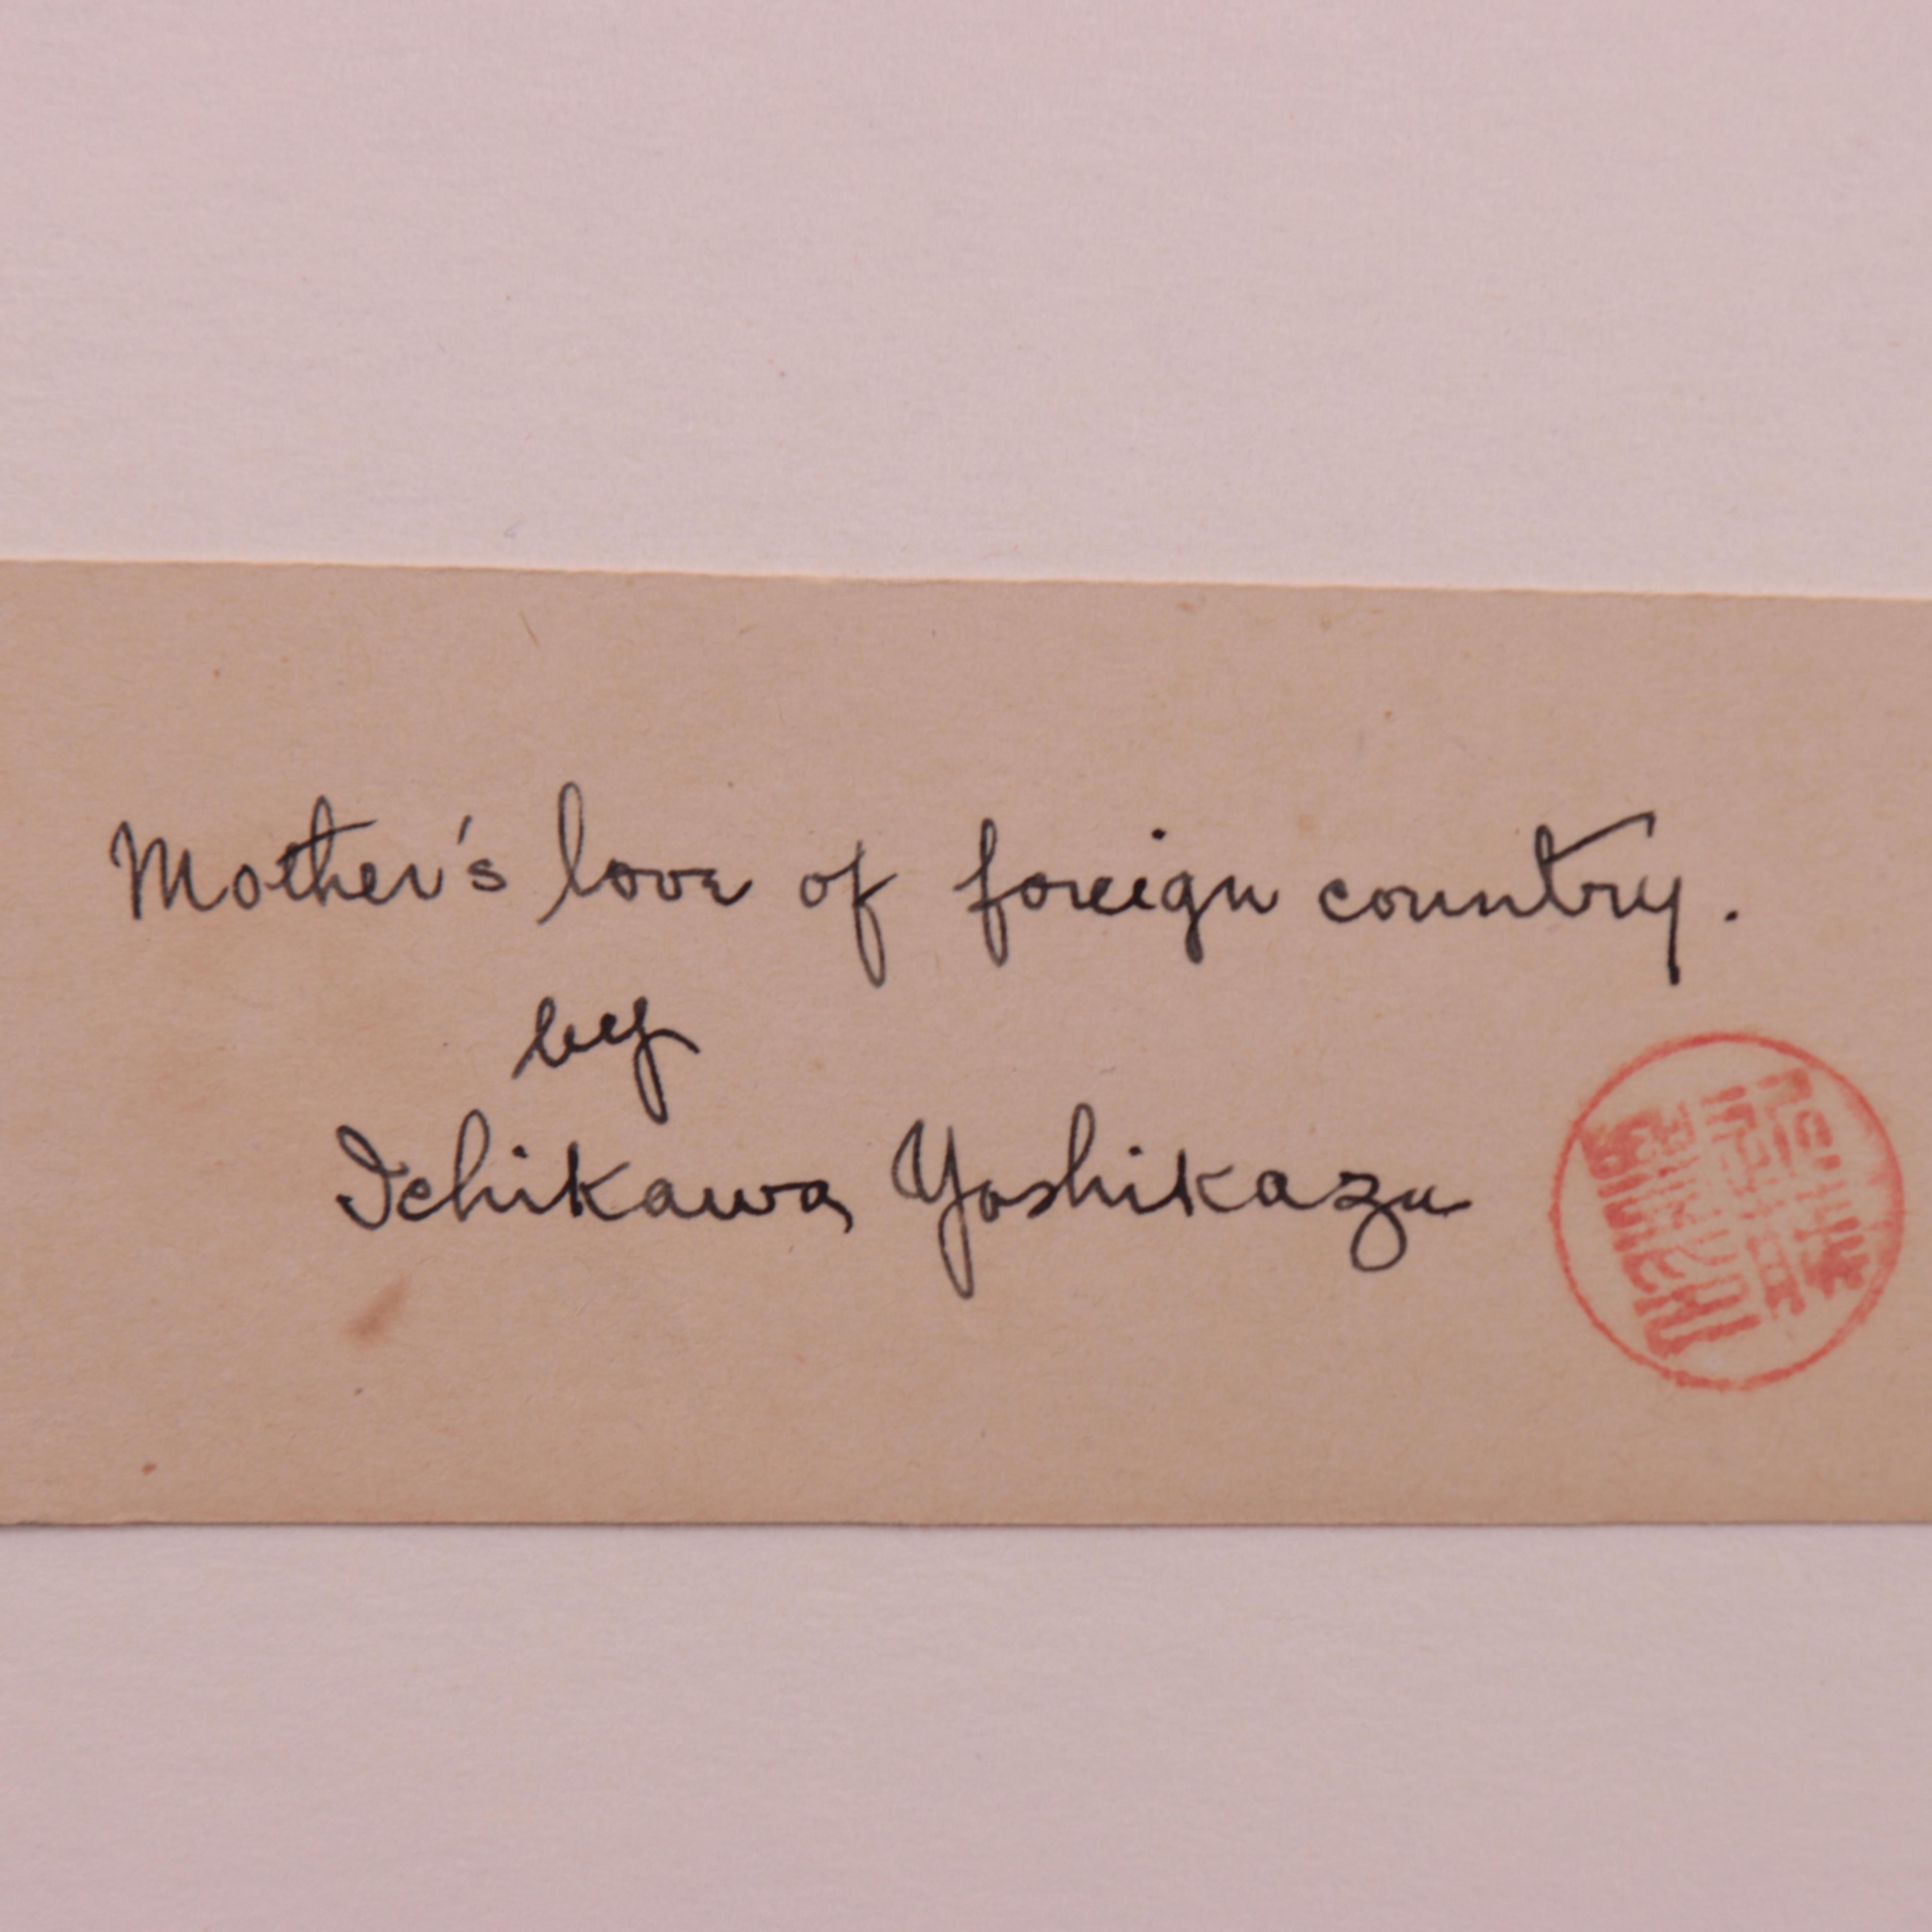 Mother's love of foreign country.
by
Ichikawa Yoshikazu